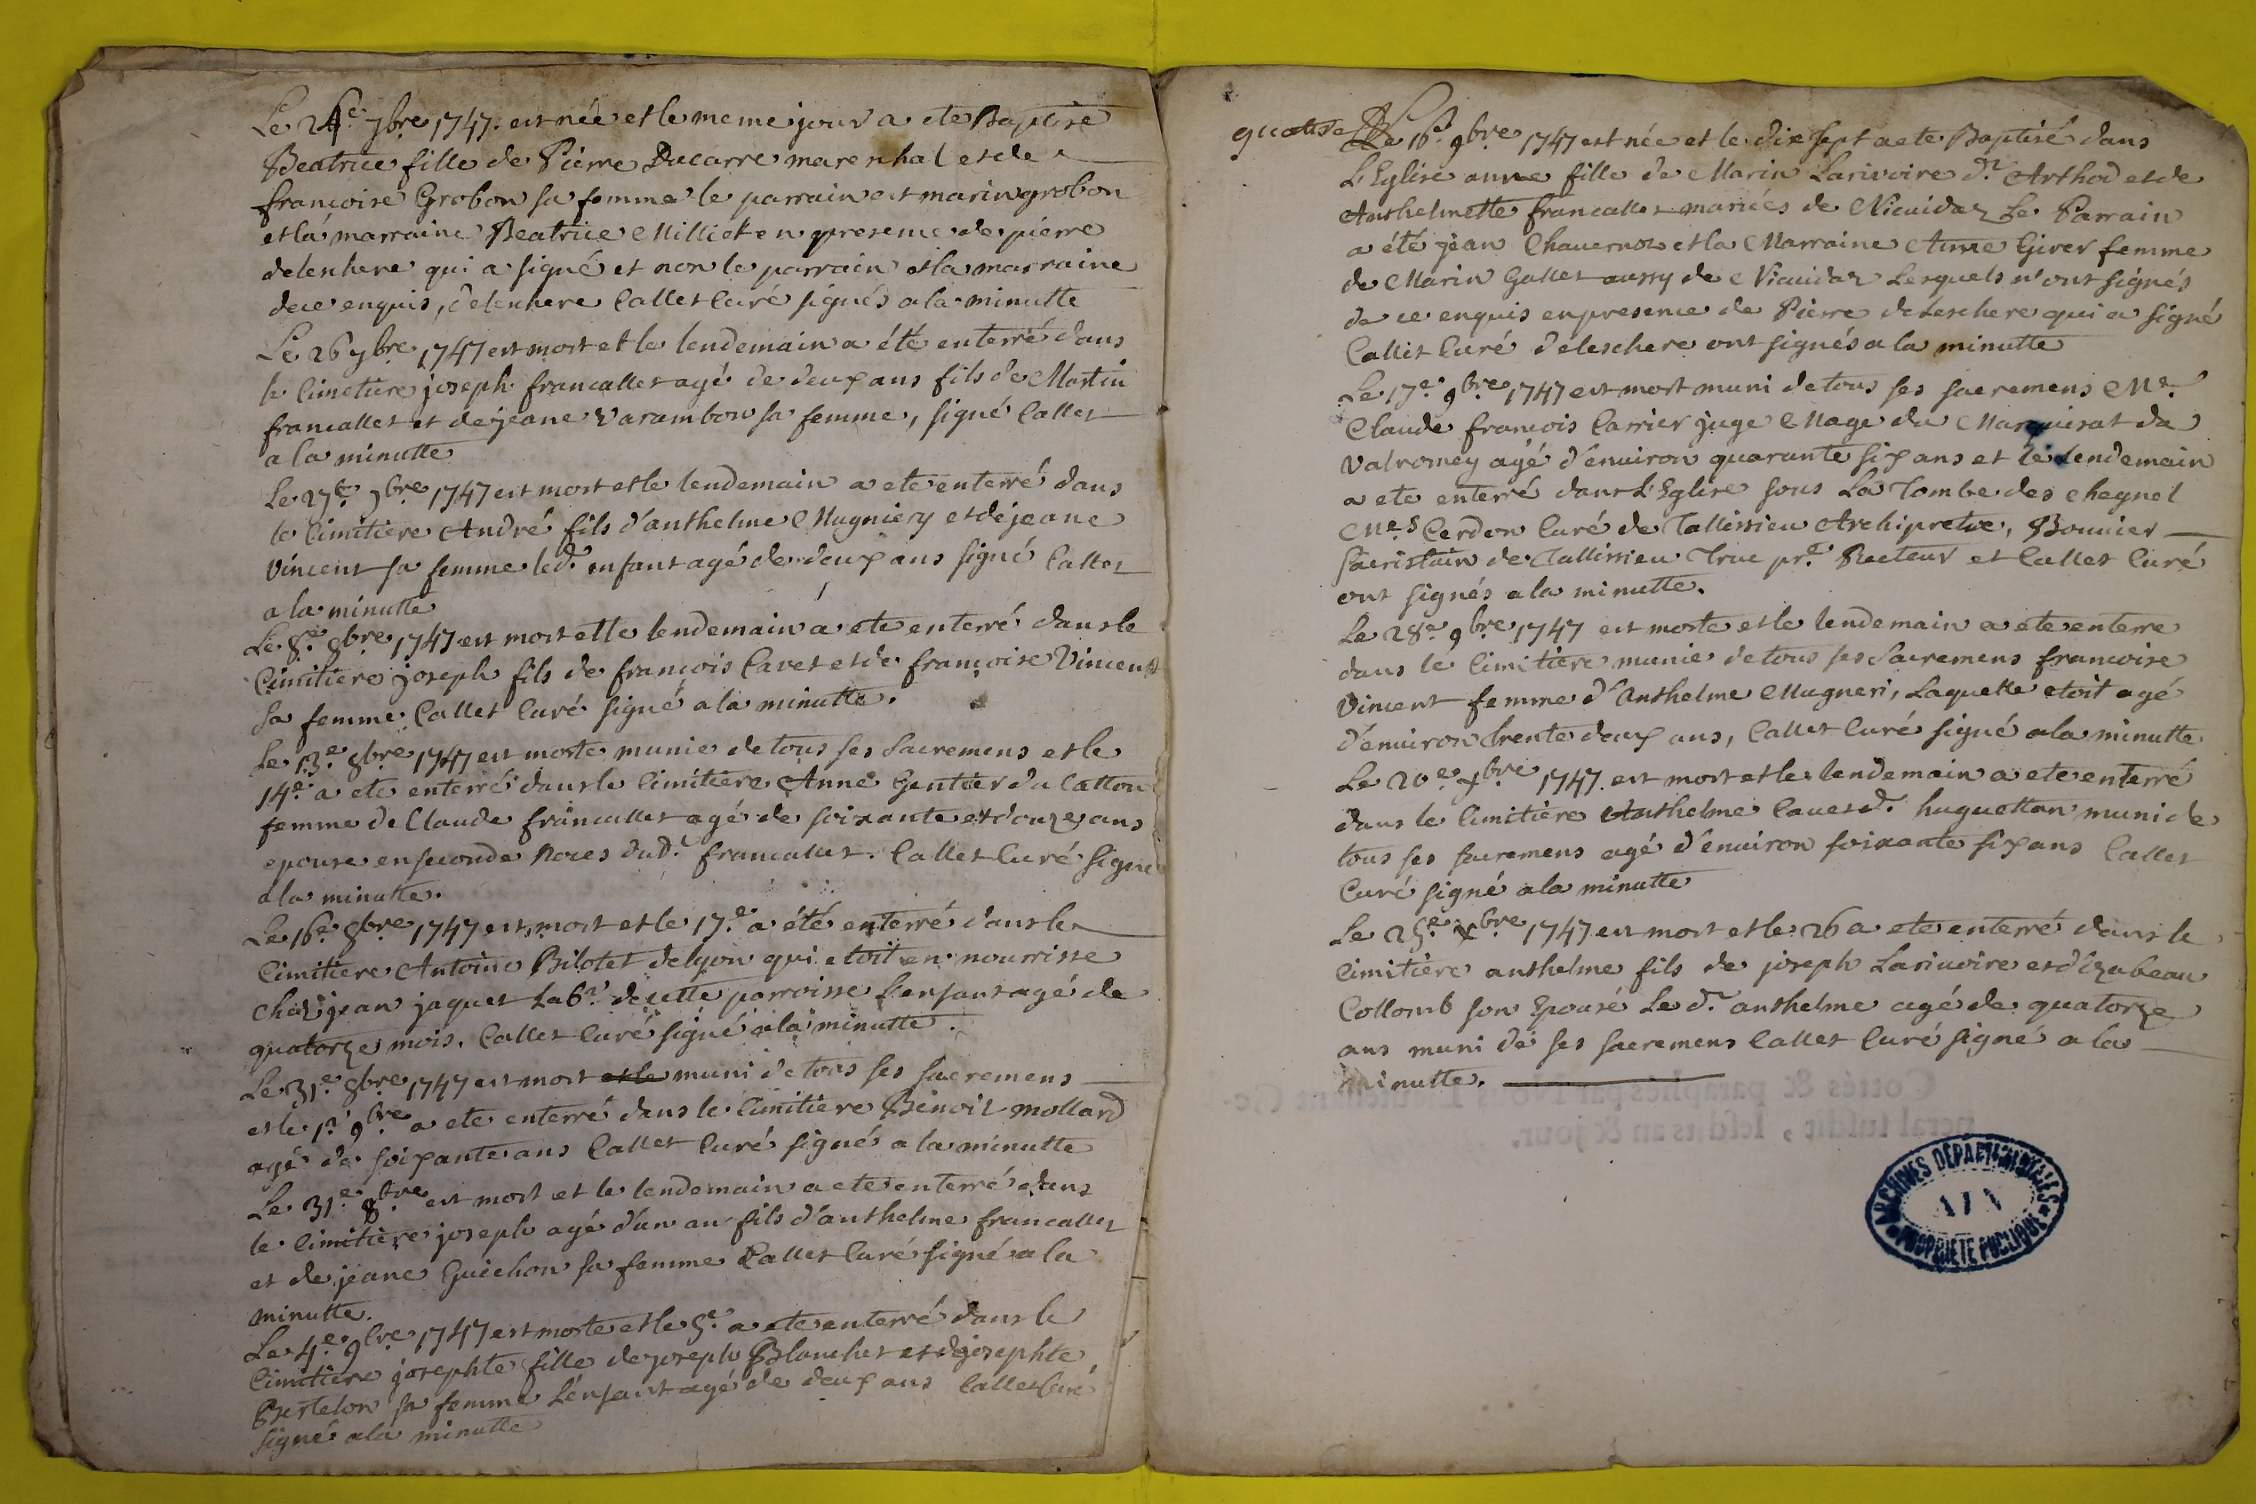 Le 24e 7bre 1747. est née et le meme jour a ete Baptisé
Beatrice fille de Pierre Ducarre mareschal et de
francoise Grobon sa femme le parrain est marin grobon
et la marraine Beatrice Milliet en presence de piérre
deleschere qui a signé et non le parrain et la marraine
de ce enquis, deleschere Callet Curé signés a la minutte
Le 26 7bre 1747 est mort et le lendemain a été enterré dans
le Cimetiere joseph francallet agé de deux ans fils de Martin
francallet et de jeane Varambon sa femme, signé Callet
a la minutte
Le 27e 7bre 1747 est mort et le lendemain a ete enterré dans
le Cimitiere André fils d'anthelme Mugniery et de jeane
Vincent sa femme led. enfant agé de deux ans signé Callet
a la minutte
Le 8e 8bre 1747 est mort et le lendemain a ete enterré dans le
Cimitiere joseph fils de francois Cavet et de françoise Vincent
sa femme. Callet Curé signé a la minutte.
Le 13e 8bre 1747 est morte munie de tous ses Sacremens et le
14e a ete enterré dans le Cimitiere Anne Gentier du Catton
femme de Claude francallet agé de soixante et douze ans
epouse en seconde Noces dud. francallet. Callet Curé signé
a la minutte.
Le 16e 8bre 1747 est mort et le 17e a été enterré dans le
Cimitiere Antoine Bilotet de lyon qui etoit en nourrisse
chez jean jaquet Lab.r de cette parroisse l'enfant agé de
quatorze mois. Callet Curé signé a la minutte.
Le 31e 8bre 1747 est mort et le muni de tous ses sacremens
et le 1r 9bre a ete enterré dans le Cimitiere Benoit mollard
agé de soixante ans Callet Curé signés a la minutte
Le 31e 8bre est mort et le lendemain a ete enterré dans
le Cimitiere joseph agé d'un an fils d'anthelme francallet
et de jeane Guichon sa femme Callet Curé signé a la
minutte.
Le 4e 9bre 1747 est morte et le 5e a ete enterré dans le
Cimitiere josephte fille de joseph Blanchet et de josephte
Bertelon sa femme L'enfant agé de deux ans Callet Curé
signé a la minutte
quatre Le 16e 9bre 1747 est née et le dix sept a ete Baptisé dans
L'Eglise anne fille de Marin Larivoire d.t Arthod et de
Anthelmette francallet mariés de Vieuidaz Le Parrain
a été jean Chavernoz et la Marraine Anne Giver femme
de Marin Gallet aussy de Vieuidaz Lesquels n'ont signés
de ce enquis en presence de Pierre deleschere qui a signé
Callet Curé deleschere ont signés a la minutte
Le 17e 9bre 1747 est mort muni de tous ses sacremens Mr
Claude francois Carrier juge Mage du Marquisat de
Valromey agé d'environ quarante six ans et le lendemain
a ete enterré dans L'Eglise sous La Tombe des Chegnel
Mes Cerdon Curé de Tallissieu Archipretre, Bouvier
Sacristain de Tallissieu Truc pre Recteur et Callet Curé
ont signés a la minutte.
Le 28e 9bre 1747 est morte et le lendemain a ete enterre
dans le Cimitiere munie de tous ses Sacremens francoise
Vincent femme d'Anthelme Mugneri, Laquelle etoit agé
d'environ trente deux ans, Callet Curé signé a la minutte
Le 20e xbre 1747. est mort et le lendemain a ete enterré
dans le Cimitiere Anthelme Cavet d.t huguettan muni de
tous ses sacremens agé d'environ soixante six ans Callet
Curé signé a la minutte
Le 25e xbre 1747 est mort et le 26 a ete enterré dans le
Cimitière anthelme fils de joseph Larivoire et d'izabeau
Collomb son Epousé Le d.t anthelme agé de quatorze
ans muni de ses sacremens Callet Curé signé a la
minutte.
ARCHIVES DÉPARTEMENTALES
AIN
PROPRIETE PUBLIQUE